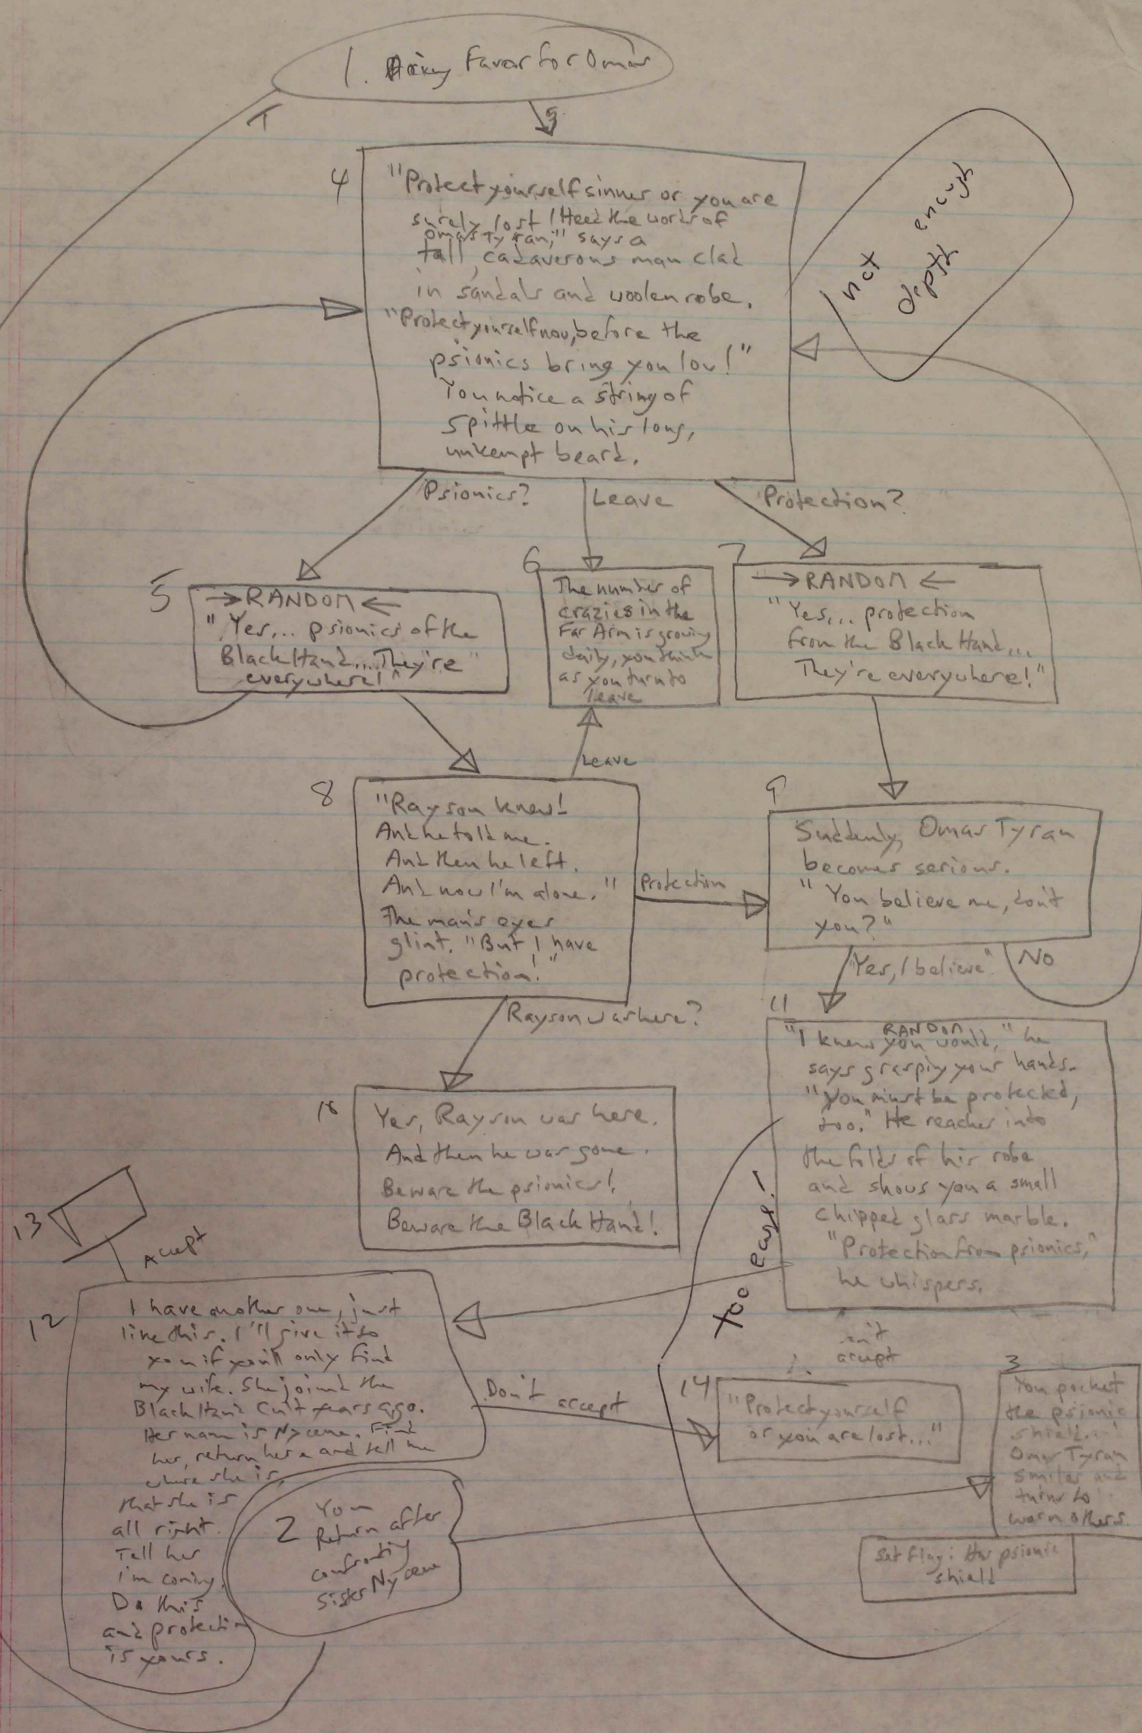 1. Doing Favor for Omar
1
3
4
"Protect yourself sinner or you are
surely lost! Heed the words of
Omar Tyran," says a
tall, cadaverous man clad
in sandals and woolen robe.
"Protect yourself now, before the
psionics bring you low!"
You notice a string of
spittle on his long,
unkempt beard.
not
enough
depth
Psionics?
Leave
Protection?
5
→RANDOM←
"Yes,... psionics of the
Black Hand... They're
everywhere!"
6
The number of
crazies in the
Far Arm is growing
daily, you think
as you turn to
leave
7
→RANDOM←
"Yes,... protection
from the Black Hand...
They're everywhere!"
Leave
8
"Rayson knew!
And he told me.
And then he left.
And now I'm alone."
The man's eyes
glint. "But I have
protection!"
Protection
9
Suddenly, Omar Tyran
becomes serious.
"You believe me, don't
you?"
"Yes, I believe"
No
Rayson was here?
10
Yes, Rayson was here.
And then he was gone.
Beware the psionics!
Beware the Black Hand!
11
RANDOM
"I knew you would," he
says grasping your hands.
"You must be protected,
too." He reaches into
the folds of his robe
and shows you a small
chipped glass marble.
"Protection from psionics,"
he whispers.
too easy!
13
Accept
12
I have another one, just
like this. I'll give it to
you if you'll only find
my wife. She joined the
Black Hand Cult years ago.
Her name is Nycene. Find
her, return here and tell me
where she is,
that she is
all right.
Tell her
I'm coming.
Do this
and protection
is yours.
Don't accept
accept
14
"Protect yourself
or you are lost..."
2
You
Return after
confronting
Sister Nycene
3
You pocket
the psionic
shield.
Omar Tyran
smiles and
turns to
warn others.
Set Flag: Has psionic
shield